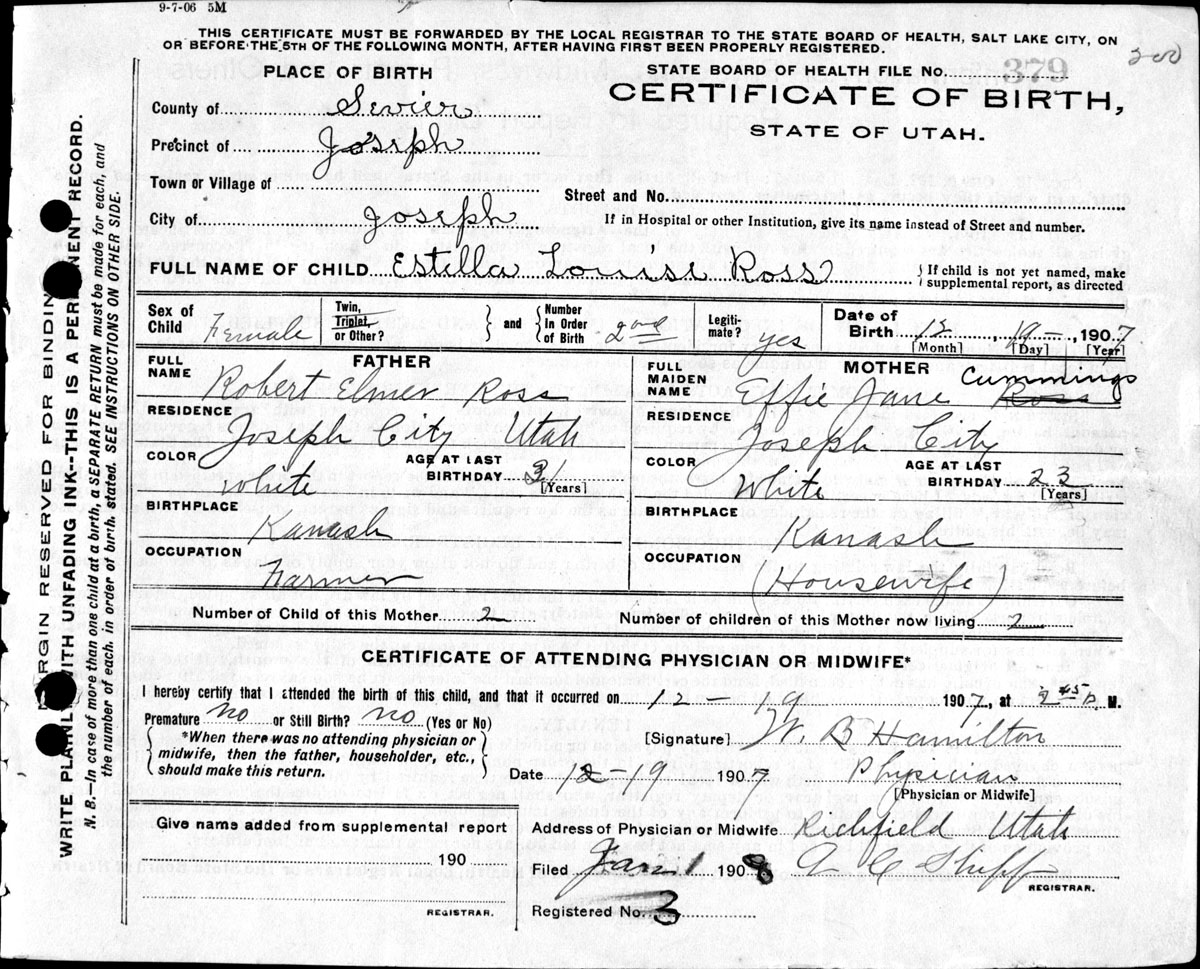 9-7-06 5M
THIS CERTIFICATE MUST BE FORWARDED BY THE LOCAL REGISTRAR TO THE STATE BOARD OF HEALTH, SALT LAKE CITY, ON
OR BEFORE THE 5TH OF THE FOLLOWING MONTH, AFTER HAVING FIRST BEEN PROPERLY REGISTERED.
200
PLACE OF BIRTH
STATE BOARD OF HEALTH FILE No. 379
County of Sevier
CERTIFICATE OF BIRTH,
Precinct of Joseph
STATE OF UTAH.
Town or Village of
Street and No.
City of Joseph
If in Hospital or other Institution, give its name instead of Street and number.
FULL NAME OF CHILD Estella Louise Ross
If child is not yet named, make
supplemental report, as directed
Sex of Child Female
Twin, Triplet, or Other? and Number In Order of Birth 2nd
Legitimate? yes
Date of Birth 12, 19 - , 1907
[Month] [Day] [Year]
FATHER
MOTHER
FULL NAME Robert Elmer Ross
FULL MAIDEN NAME Effie Jane Ross Cummings
RESIDENCE Joseph City Utah
RESIDENCE Joseph City
COLOR White
AGE AT LAST BIRTHDAY 31 [Years]
COLOR White
AGE AT LAST BIRTHDAY 23 [Years]
BIRTHPLACE Kanash
BIRTHPLACE Kanash
OCCUPATION Farmer
OCCUPATION (Housewife)
Number of Child of this Mother 2
Number of children of this Mother now living 2
CERTIFICATE OF ATTENDING PHYSICIAN OR MIDWIFE*
I hereby certify that I attended the birth of this child, and that it occurred on 12 - 19 1907, at 2 45 P. M.
Premature no or Still Birth? no (Yes or No)
*When there was no attending physician or
midwife, then the father, householder, etc.,
should make this return.
[Signature] W. B Hamilton
Date 12-19 1907 Physician
[Physician or Midwife]
Give name added from supplemental report
190
REGISTRAR.
Address of Physician or Midwife Richfield Utah
Filed Jan 1 1908
REGISTRAR.
Registered No. 3
MARGIN RESERVED FOR BINDING
WRITE PLAINLY WITH UNFADING INK--THIS IS A PERMANENT RECORD.
N. B.—In case of more than one child at a birth, a SEPARATE RETURN must be made for each, and
the number of each, in order of birth, stated. SEE INSTRUCTIONS ON OTHER SIDE.